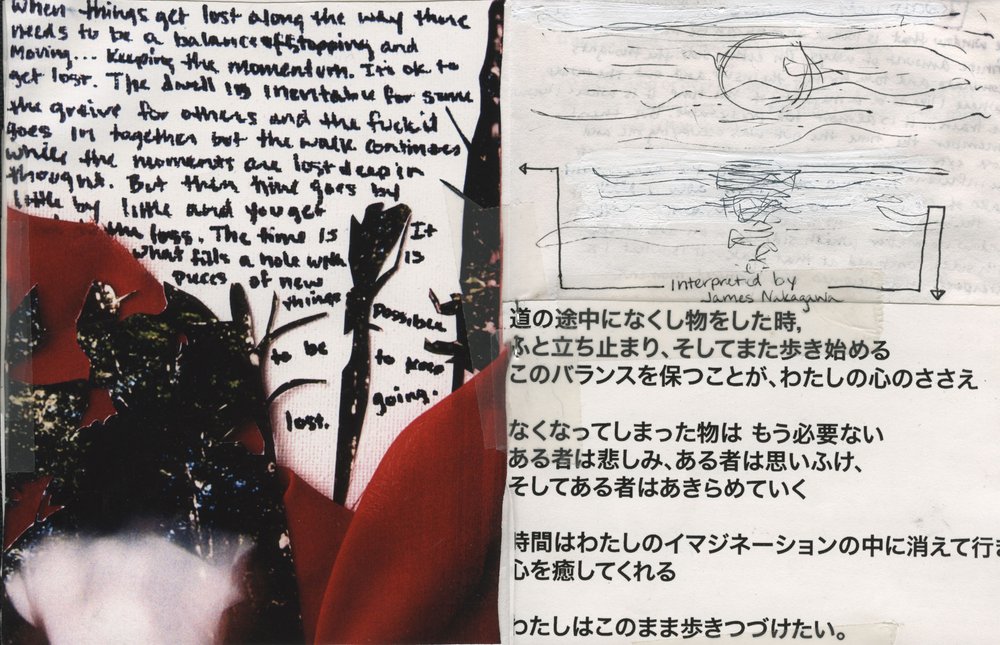 When things get lost along the way there
needs to be a balance of stopping and
Moving... Keeping the momentum. It's ok to
get lost. The dwell is inevitable for some
the greive for others and the fuck'd
goes in together but the walk continues
while the moments are lost deep in
thought. But then time goes by
little by little and you get
the loss. The time is
what fills a hole with
pieces of new
things
It
is
possible
to keep
going.
to be
lost.
Interpreted by
James Nakagawa
道の途中になくし物をした時,
ふと立ち止まり、そしてまた歩き始める
このバランスを保つことが、わたしの心のささえ
なくなってしまった物は もう必要ない
ある者は悲しみ、ある者は思いふけ、
そしてある者はあきらめていく
時間はわたしのイマジネーションの中に消えて行き
心を癒してくれる
わたしはこのまま歩きつづけたい。